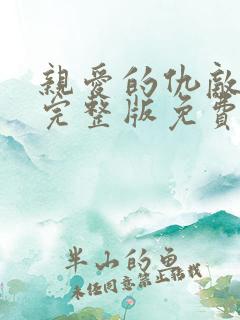 親愛的仇敵
完整版免費
半山的魚
未经同意禁止转载